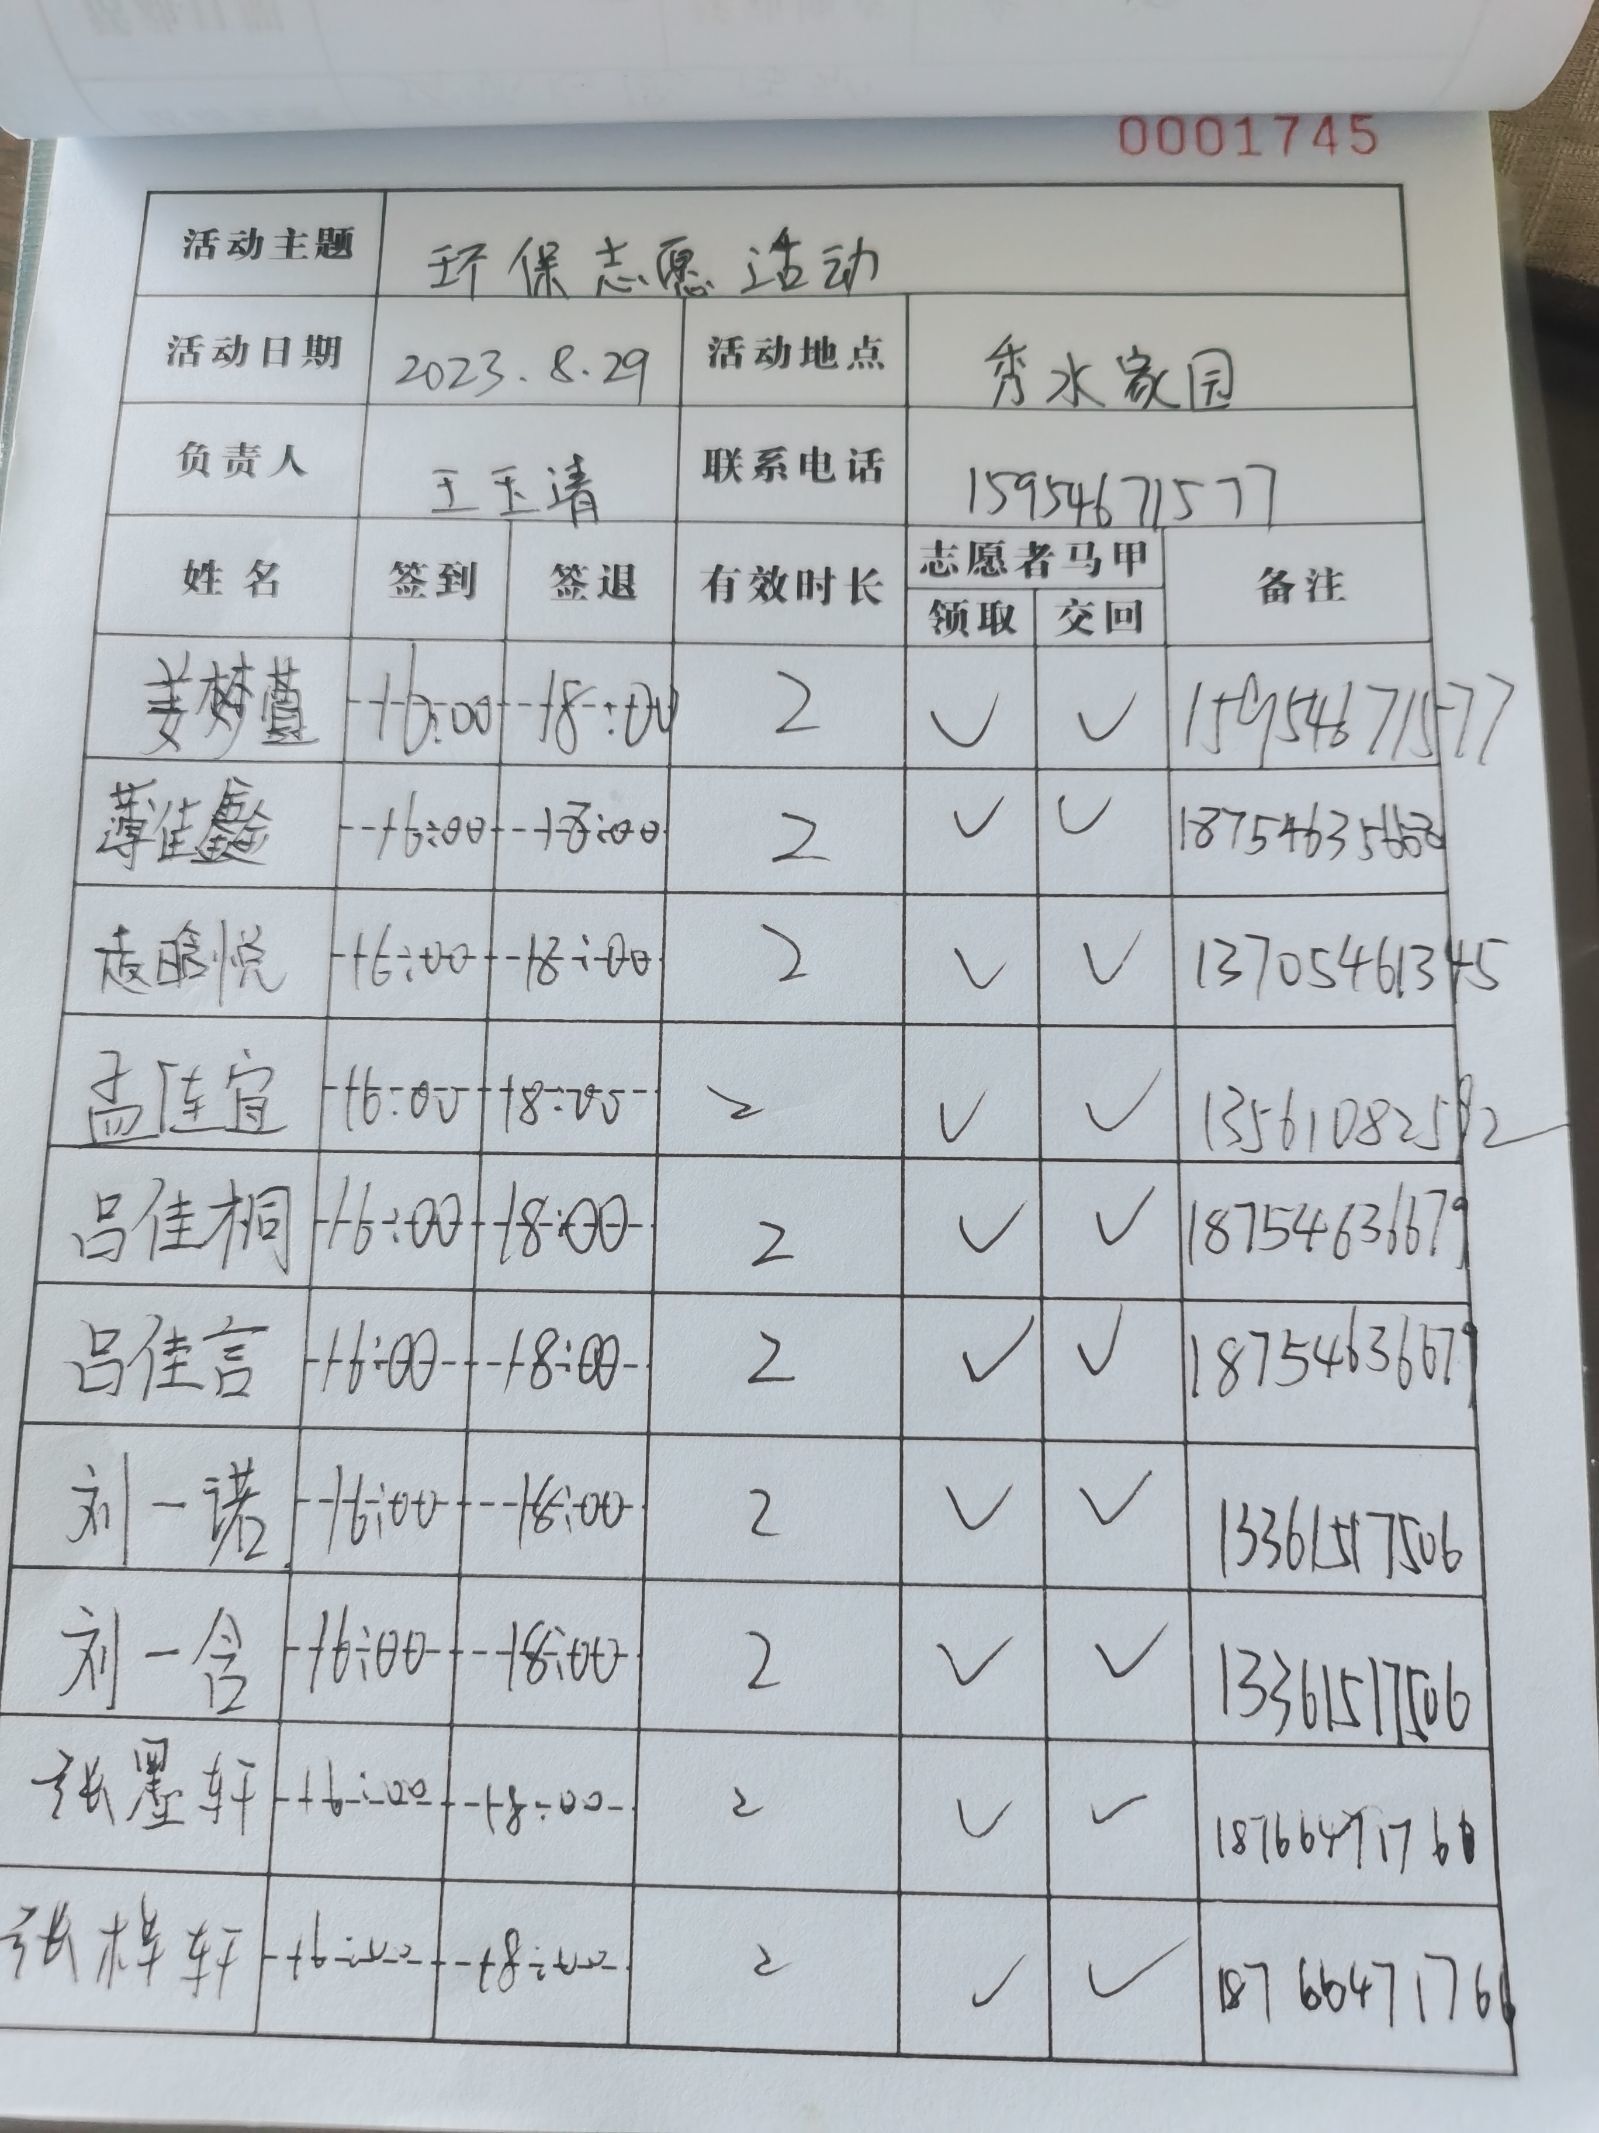 0001745
活动主题 环保志愿活动
活动日期 2023.8.29 活动地点 秀水家园
负责人 王玉清 联系电话 15954671577
姓名 签到 签退 有效时长 志愿者马甲 备注
领取 交回
姜梦萱 16:00 18:00 2 ✓ ✓ 15954671577
薄佳鑫 16:00 18:00 2 ✓ ✓
悦 16:00 18:00 2 ✓ ✓ 13705461345
孟佳宜 16:00 18:00 2 ✓ ✓ 13561082592
吕佳桐 16:00 18:00 2 ✓ ✓ 18754636679
吕佳言 16:00 18:00 2 ✓ ✓ 18754636679
刘一诺 16:00 18:00 2 ✓ ✓ 13361517506
刘一含 16:00 18:00 2 ✓ ✓ 13361517506
张墨轩 16:00 18:00 2 ✓ ✓ 18766471766
张梓轩 16:00 18:00 2 ✓ ✓ 18766471766